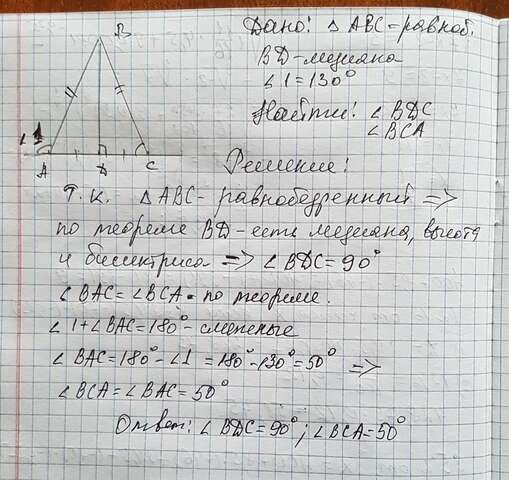 Дано: △ABC-равноб.
BD-медиана
∠1=130°
Найти: ∠BDC
∠BCA
B
∠1
A
D
C
Решение:
Т.К. △ABC- равнобедренный =>
по теореме BD-есть медиана, высота
и биссектриса => ∠BDC=90°
∠BAC=∠BCA - по теореме.
∠1+∠BAC=180°- смежные
∠BAC=180°-∠1=180°-130°=50° =>
∠BCA=∠BAC=50°
Ответ: ∠BDC=90°; ∠BCA=50°